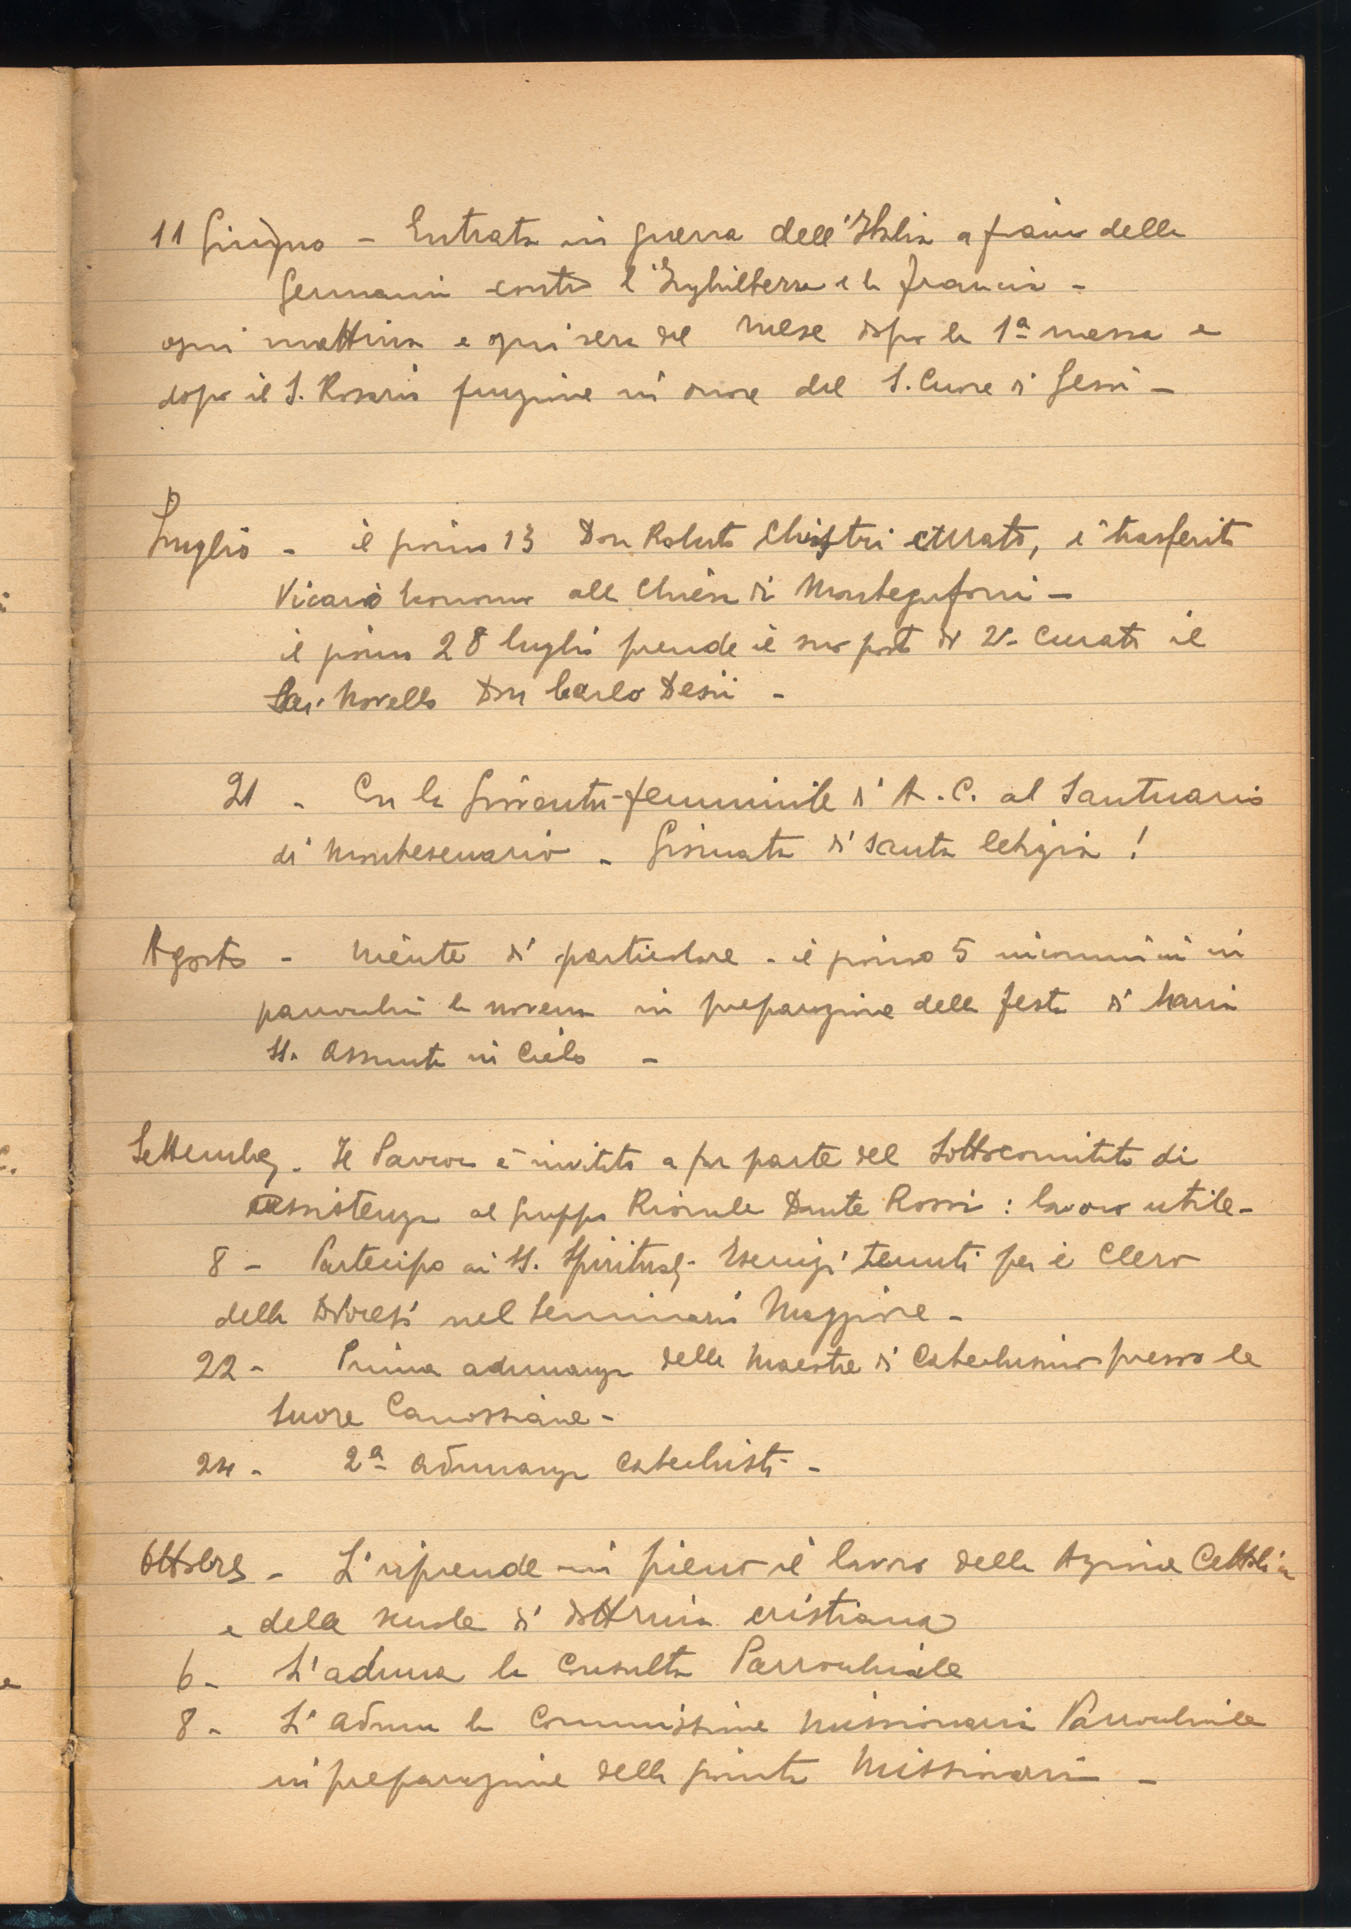 11 Giugno - Entrata in guerra dell'Italia a fianco della
Germania contro l'Inghilterra e la Francia -
ogni mattina e ogni sera del mese dopo la 1ª messa e
dopo il S. Rosario funzione in onore del S. Cuore di Gesù -
Luglio - il giorno 13 Don Roberto curato, è trasferito
Vicario Economo alla Chiesa di Montegufoni -
il giorno 28 luglio prende il suo posto di 2º Curato il
Sac. Novello Don Carlo Desii -
21 - Con la Gioventù femminile di A. C. al Santuario
di Montesenario - Giornata di santa letizia!
Agosto - Niente di particolare - il giorno 5 incomincia in
parrocchia la novena in preparazione della festa di Maria
SS. Assunta in Cielo -
Settembre - Il Parroco è invitato a far parte del Sottocomitato di
assistenza al gruppo Rionale Dante Rossi: lavoro utile -
8 - Partecipo ai SS. Spirituali Esercizi tenuti per il Clero
della Diocesi nel Seminario Maggiore -
22 - Prima adunanza delle Maestre di Catechismo presso le
Suore Canossiane -
24 - 2ª adunanza catechisti -
Ottobre - Si riprende in pieno il lavoro della Azione Cattolica
e della scuola di dottrina cristiana
6 - Si aduna la Consulta Parrocchiale
8 - Si aduna la Commissione Missionaria Parrocchiale
in preparazione della giornata Missionaria -